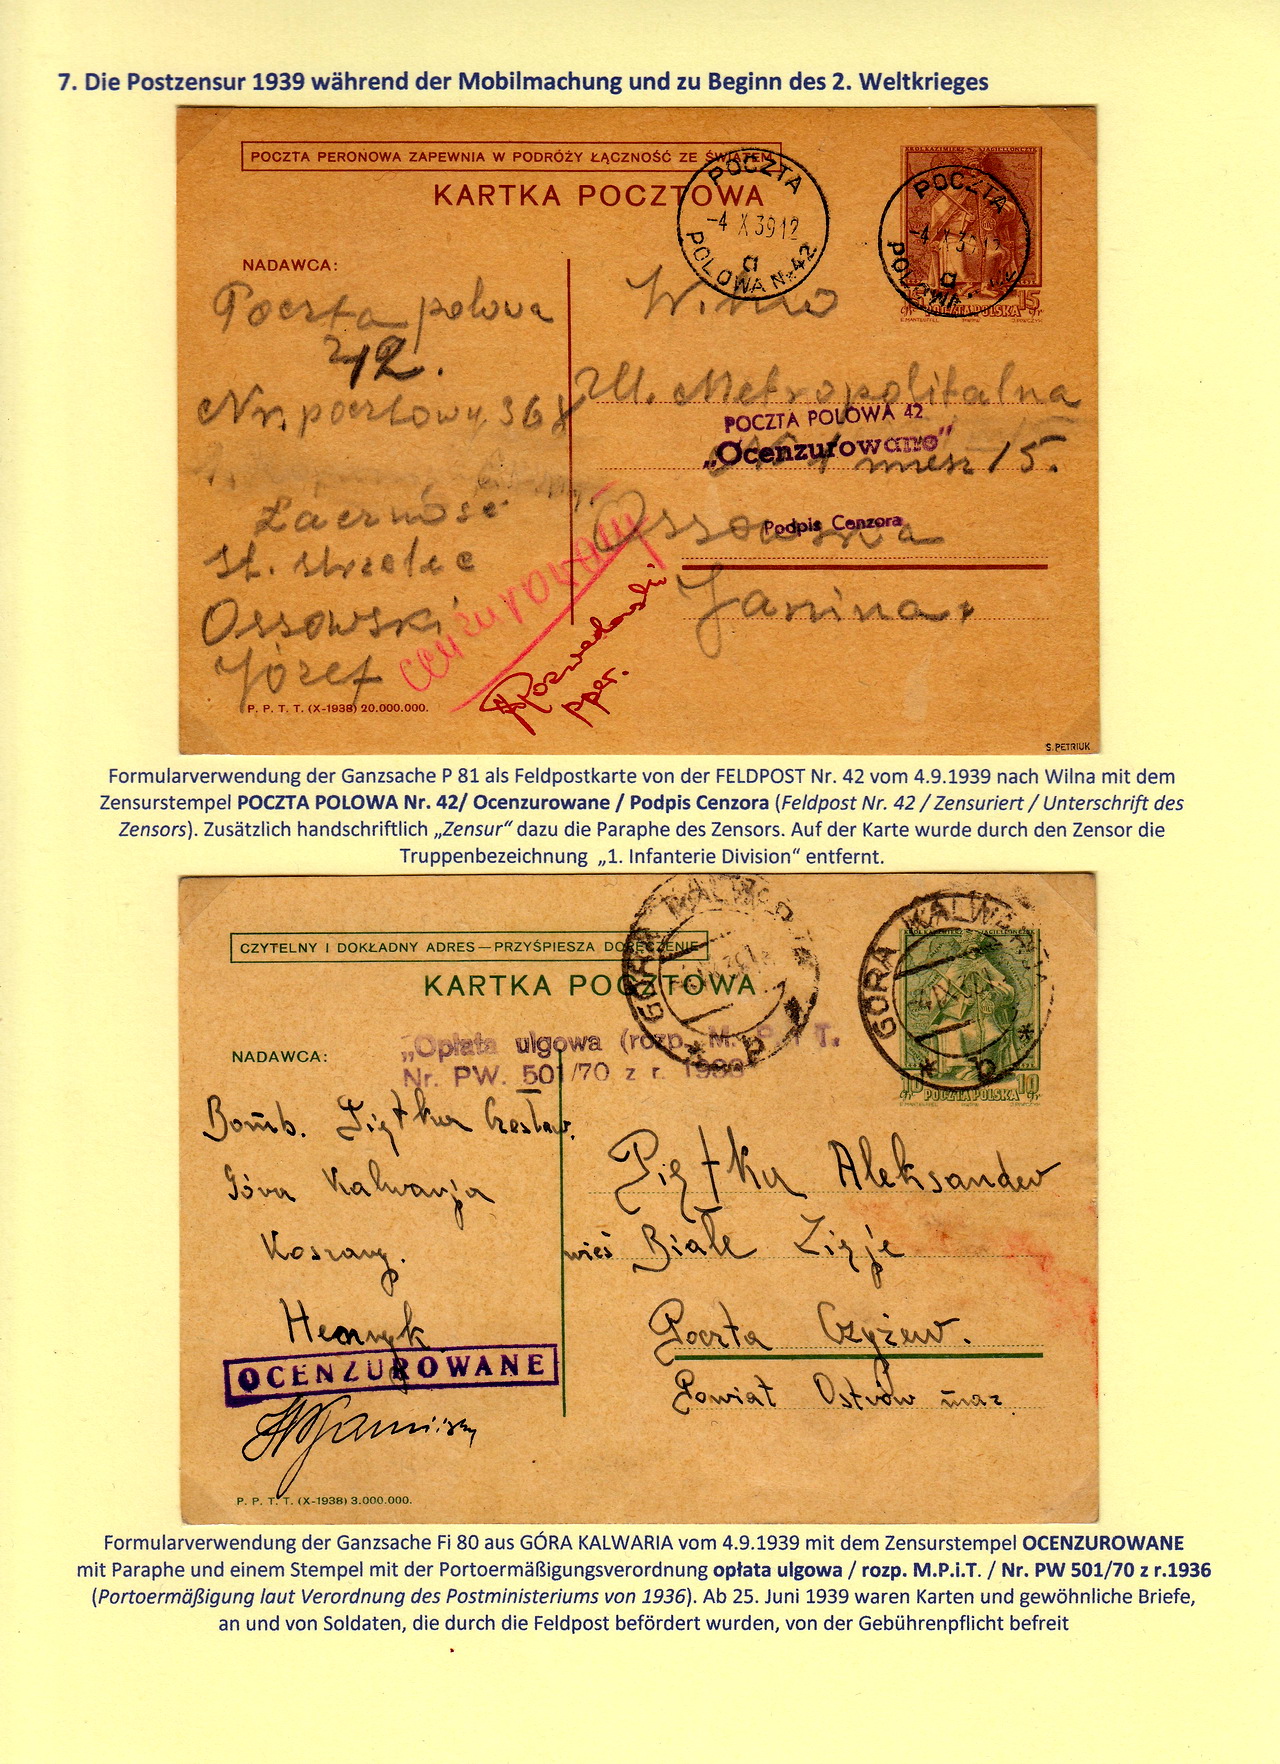 7. Die Postzensur 1939 während der Mobilmachung und zu Beginn des 2. Weltkrieges
POCZTA PERONOWA ZAPEWNIA W PODRÓŻY ŁĄCZNOŚĆ ZE ŚWIATEM
KARTKA POCZTOWA
POCZTA
-4 X 39 12
a
POLOWA Nr 42
POCZTA
-4 X 39 12
a
POLOWA
15
gr POCZTA POLSKA gr
NADAWCA:
Poczta polowa
42.
Nr. pocztowy 368
Łączność
St. strzelec
Ossowski
Józef
Wilno
Ul. Metropolitalna
miesz 15.
Ossowska
Janina.
POCZTA POLOWA 42
„Ocenzurowane"
Podpis Cenzora
cenzurowany
P. P. T. T. (X-1938) 20.000.000.
S. PETRIUK
Formularverwendung der Ganzsache P 81 als Feldpostkarte von der FELDPOST Nr. 42 vom 4.9.1939 nach Wilna mit dem
Zensurstempel POCZTA POLOWA Nr. 42/ Ocenzurowane / Podpis Cenzora (Feldpost Nr. 42 / Zensuriert / Unterschrift des
Zensors). Zusätzlich handschriftlich „Zensur“ dazu die Paraphe des Zensors. Auf der Karte wurde durch den Zensor die
Truppenbezeichnung „1. Infanterie Division“ entfernt.
CZYTELNY I DOKŁADNY ADRES—PRZYŚPIESZA DORĘCZENIE
KARTKA POCZTOWA
GÓRA KALWARIA
* b *
GÓRA KALWARIA
* b *
10 10
gr POCZTA POLSKA gr
„Opłata ulgowa (rozp. M. P. i T.
Nr. PW. 501/70 z r. 1936
NADAWCA:
Bomb. Piętka Czesław.
Góra Kalwarja
Koszary.
Henryk
OCENZUROWANE
Piętka Aleksander
wieś Białe Zieje
Poczta Czyżew.
Powiat Ostrów maz.
P. P. T. T. (X-1938) 3.000.000.
Formularverwendung der Ganzsache Fi 80 aus GÓRA KALWARIA vom 4.9.1939 mit dem Zensurstempel OCENZUROWANE
mit Paraphe und einem Stempel mit der Portoermäßigungsverordnung opłata ulgowa / rozp. M.P.i.T. / Nr. PW 501/70 z r.1936
(Portoermäßigung laut Verordnung des Postministeriums von 1936). Ab 25. Juni 1939 waren Karten und gewöhnliche Briefe,
an und von Soldaten, die durch die Feldpost befördert wurden, von der Gebührenpflicht befreit